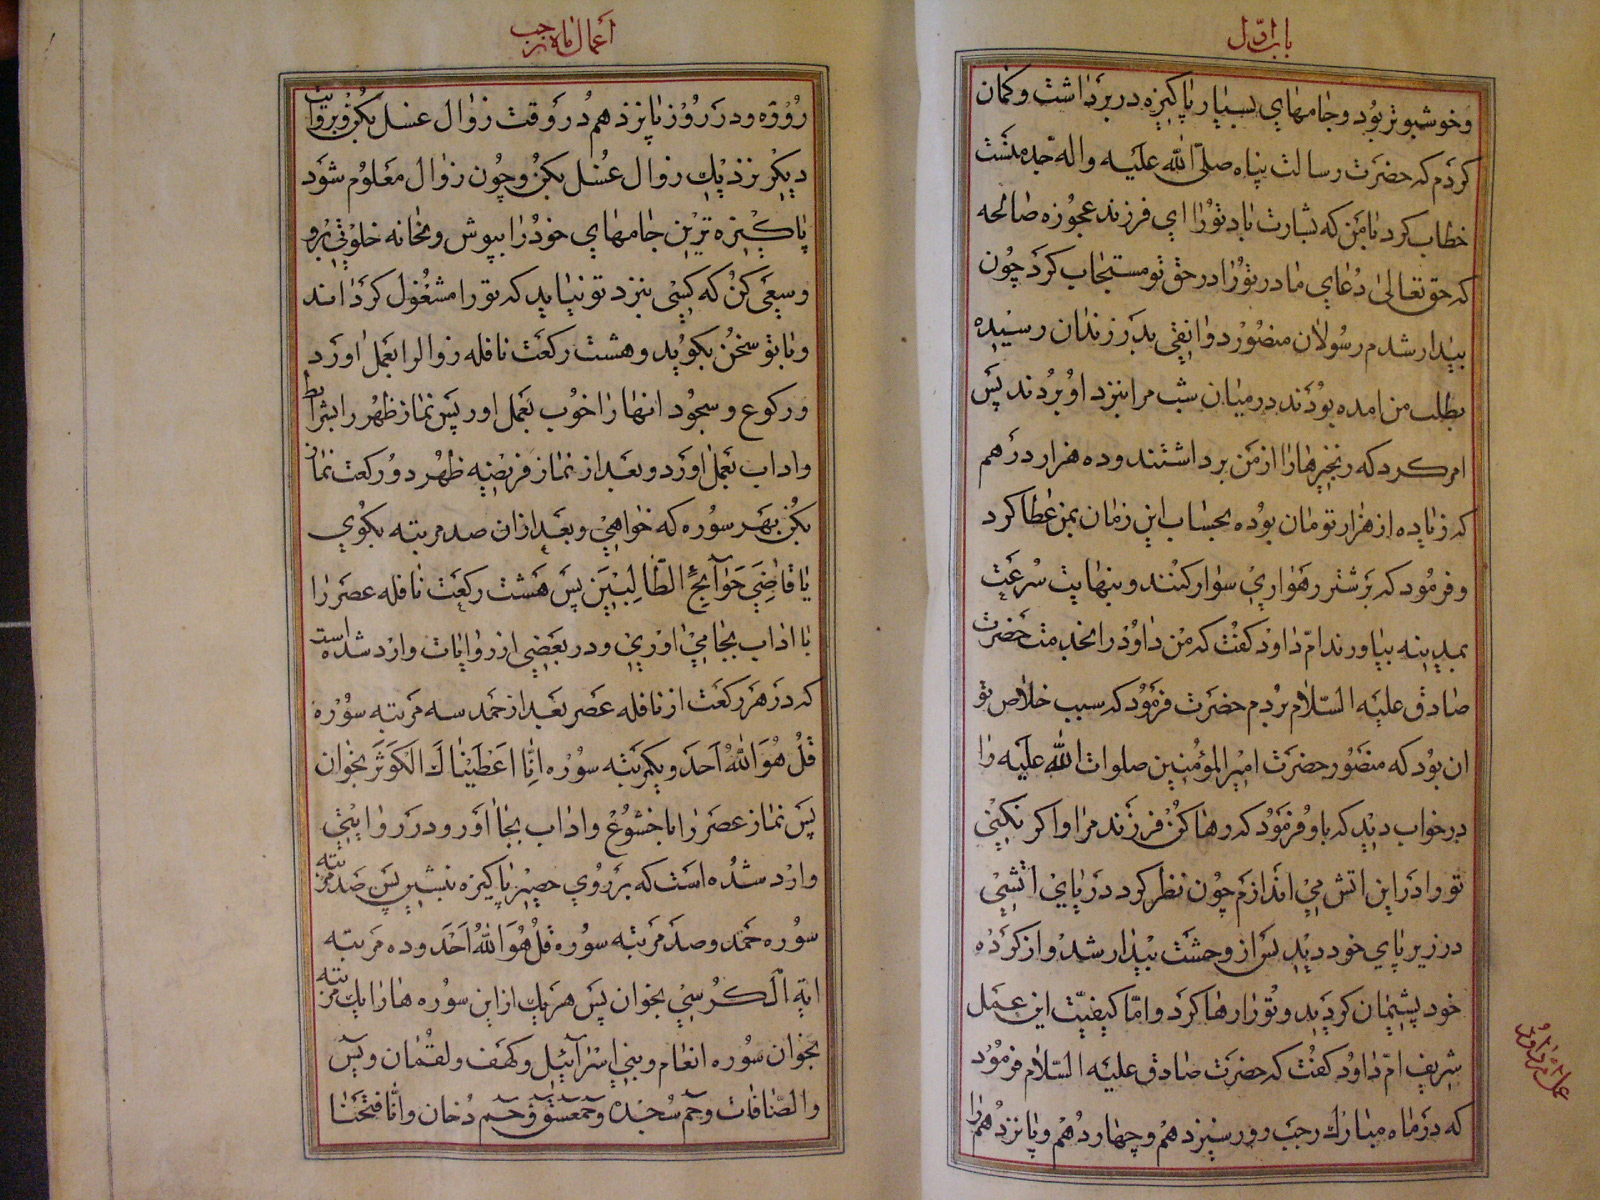 باب اول
وخوشبوتر بود وجامهای بسیار پاکیزه در بر داشت وکمان
کردم که حضرت رسالت پناه صلی الله علیه واله
خطاب کرد با من که بشارت باد تورا ای فرزند عجوزه صالحه
که حق تعالی دعای مادر تورا در حق تو مستجاب کرد چون
بیدار شدم رسولان منصور دوانقی بدر زندان رسیده
بطلب من امده بودند در میان شب مرا بنزد او بردند پس
امر کرد که زنجیرها را از من برداشتند وده هزار درهم
که زیاده از هزار تومان بوده بحساب این زمان بمن عطا کرد
وفرمود که بر شتر رهواری سوار کنند وبنهایت سرعت
بمدینه بیاورند ام داود کفت که من داود را بخدمت حضرت
صادق علیه السلام بردم حضرت فرمود که سبب خلاص تو
ان بود که منصور حضرت امیر المؤمنین صلوات الله علیه را
در خواب دید که باو فرمود که رها کن فرزند مرا واکر نکنی
تو را در این اتش می اندازم چون نظر کرد در پای اتشی
در زیر پای خود دید پس از وحشت بیدار شد واز کرده
خود پشیمان کردید وتو را رها کرد واما کیفیت این عمل
شریف ام داود کفت که حضرت صادق علیه السلام فرمود
که در ماه مبارک رجب روز سیزدهم وچهاردهم وپانزدهم را
عمل ام داود
اعمال ماه رجب
روزه ودر روز پانزدهم در وقت زوال غسل بکن وبروایت
دیکر نزدیک زوال غسل بکن وچون زوال معلوم شود
پاکیزه ترین جامهای خود را بپوش وبخانه خلوتی برو
وسعی کن که کسی بنزد تو نیاید که تو را مشغول کرداند
وبا تو سخن بکوید وهشت رکعت نافله زوال را بعمل اورد
ورکوع وسجود انها را خوب بعمل اور پس نماز ظهر را بشرایط
واداب بعمل اورد وبعد از نماز فریضه ظهر دو رکعت نماز
بکن بهر سوره که خواهی وبعد از ان صد مرتبه بکوی
یا قاضی حوآیج الطالبین پس هشت رکعت نافله عصر را
با اداب بجا می اوری ودر بعضی از روایات وارد شده است
که در هر رکعت از نافله عصر بعد از حمد سه مرتبه سوره
قل هو الله احد ویکمرتبه سوره انا اعطیناک الکوثر بخوان
پس نماز عصر را با خشوع واداب بجا اور ودر روایتی
وارد شده است که بر روی حصیر پاکیزه بنشین پس صد مرتبه
سوره حمد وصد مرتبه سوره قل هو الله احد وده مرتبه
ایة الکرسی بخوان پس هر یک از این سوره ها را یک مرتبه
بخوان سوره انعام وبنی اسرآئیل وکهف ولقمان ویس
والصافات وحم سجده وحمعسق وحم دخان وانا فتحنا